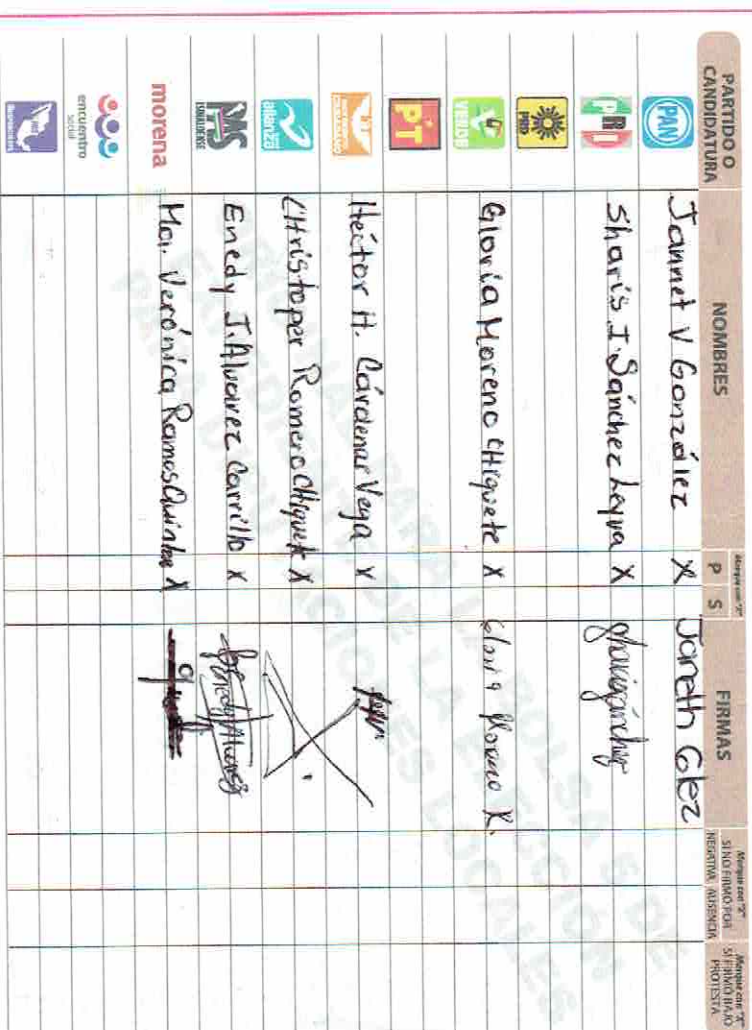 PARTIDO O CANDIDATURA NOMBRES Marque con "X" P S FIRMAS Marque con "X" SI NO FIRMÓ POR NEGATIVA AUSENCIA Marque con "X" SI FIRMÓ BAJO PROTESTA
PAN Jannet V González X Janeth Glez
PRI Sharis I. Sánchez Leyva X
PRD
VERDE Gloria Moreno CHiquete X Gloria Moreno
PT
MOVIMIENTO CIUDADANO Héctor H. Cárdenas Vega X
alianza CHristoper Romero CHiquete X
PAS SINALOENSE Enedy J. Alvarez Carrillo X
morena Ma. Verónica Ramos X
encuentro social
ORIGINAL PARA LA BOLSA DE
EXPEDIENTE DE LA ELECCIÓN
PARA DIPUTACIONES LOCALES